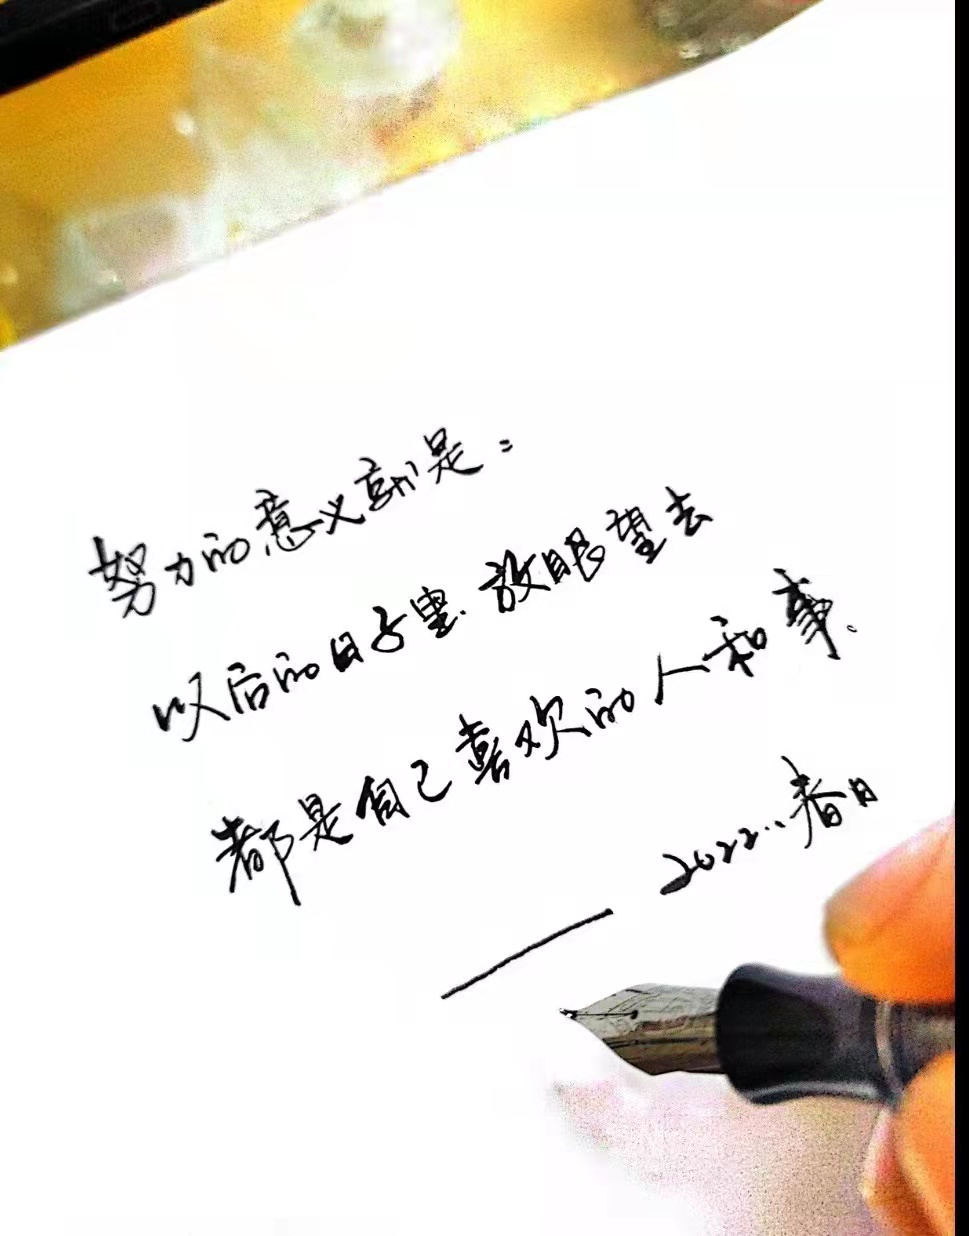 努力的意义就是:
以后的日子里.放眼望去
都是自己喜欢的人和事.
2022..春日